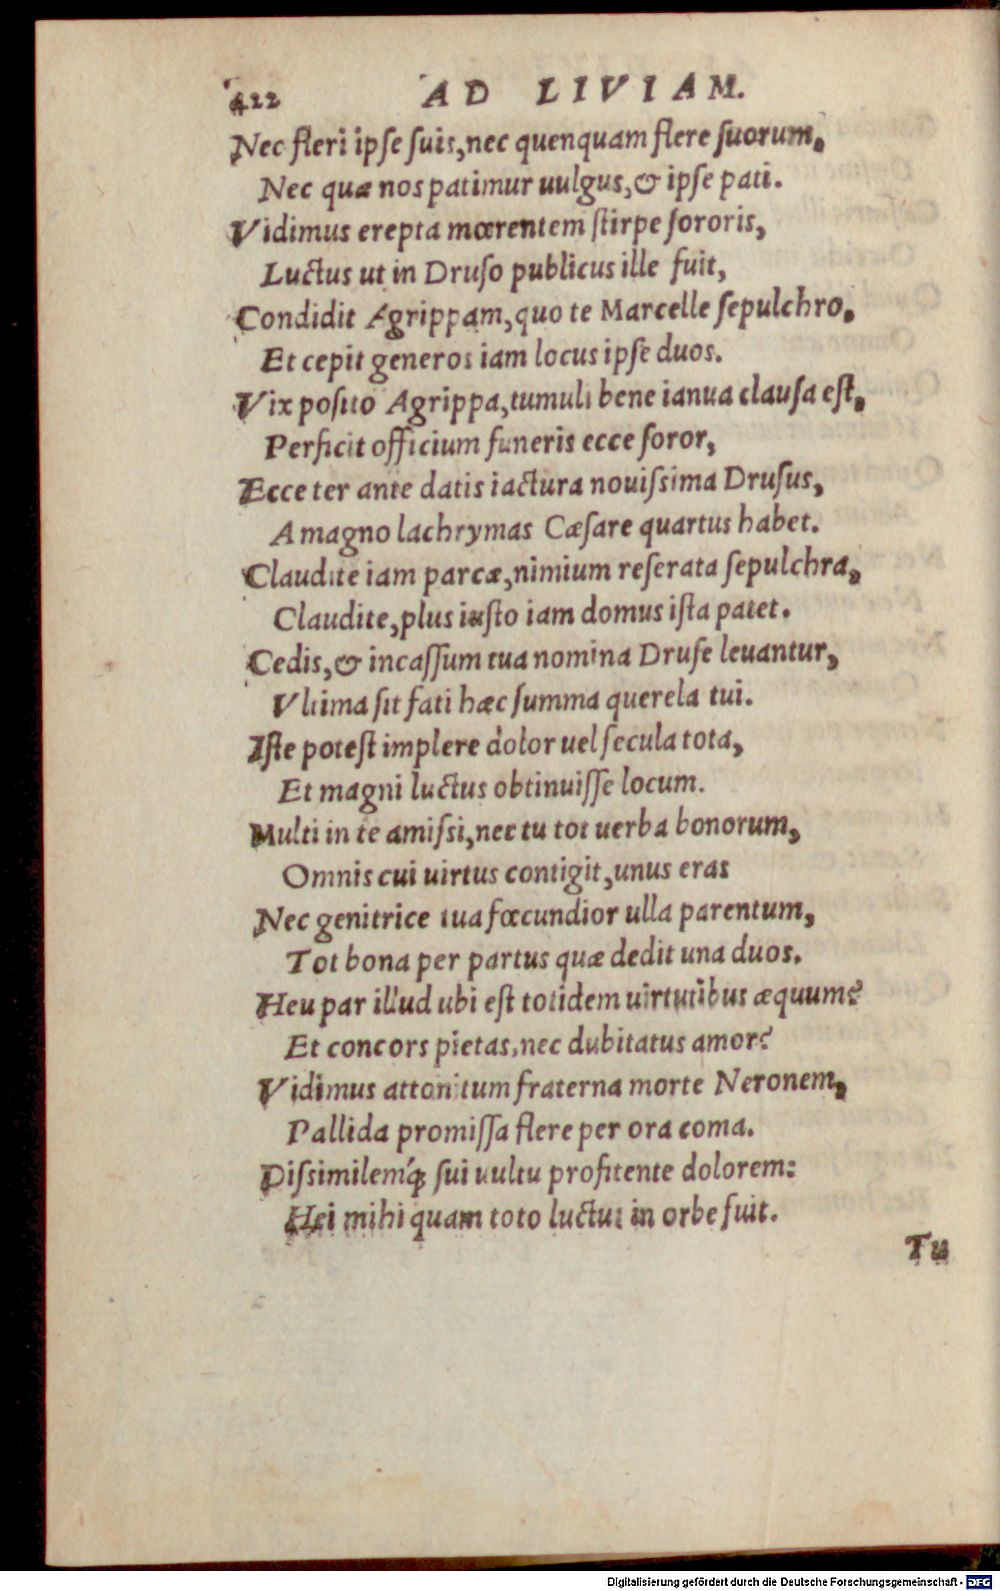 422 AD LIVIAM.
Nec fleri ipse suis, nec quenquam flere suorum,
Nec quæ nos patimur uulgus, & ipse pati.
Vidimus erepta mœrentem stirpe sororis,
Luctus ut in Druso publicus ille fuit,
Condidit Agrippam, quo te Marcelle sepulchro,
Et cepit generos iam locus ipse duos.
Vix posito Agrippa, tumuli bene ianua clausa est,
Perficit officium funeris ecce soror,
Ecce ter ante datis iactura nouissima Drusus,
A magno lachrymas Cæsare quartus habet.
Claudite iam parcæ, nimium reserata sepulchra,
Claudite, plus iusto iam domus ista patet.
Cedis, & incassum tua nomina Druse leuantur,
Vltima sit fati hæc summa querela tui.
Iste potest implere dolor uel secula tota,
Et magni luctus obtinuisse locum.
Multi in te amissi, nec tu tot uerba bonorum,
Omnis cui uirtus contigit, unus eras
Nec genitrice tua fœcundior ulla parentum,
Tot bona per partus quæ dedit una duos.
Heu par illud ubi est totidem uirtutibus æquum?
Et concors pietas, nec dubitatus amor?
Vidimus attonitum fraterna morte Neronem,
Pallida promissa flere per ora coma.
Dissimilemq́; sui uultu profitente dolorem:
Hei mihi quam toto luctus in orbe fuit.
Tu
Digitalisierung gefördert durch die Deutsche Forschungsgemeinschaft - DFG